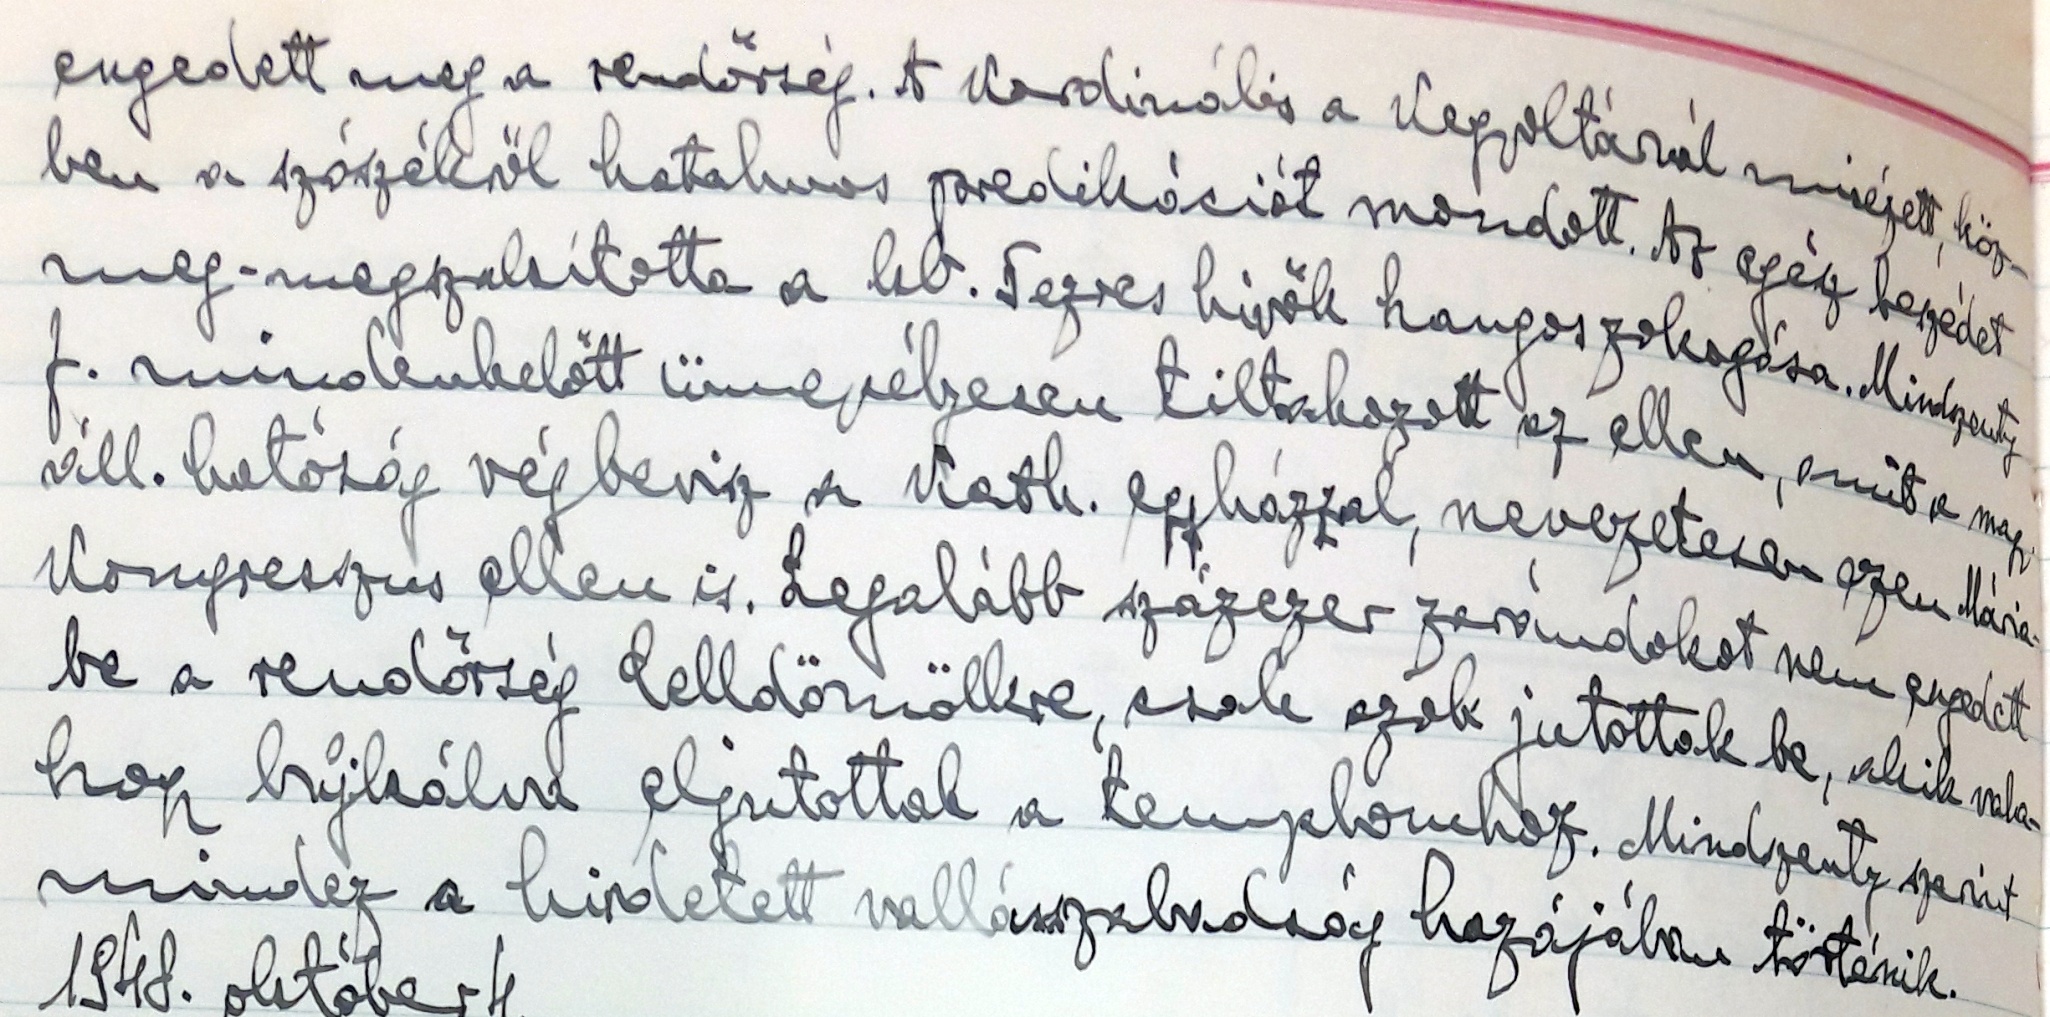 engedett meg a rendőrség. A Kardinális a Kegyoltárnál misézett, köz-
ben a szószékről hatalmas predikációt mondott. Az egész beszédet
meg-megszakította a kb. Tezres hivők hangos zokogása. Mindszenty
J. mindenkelőtt ünnepélyesen tiltakozott az ellen, amit a mag.
áll. hatóság végbevisz a Kath. egyházzal, nevezetesen ezen Mária-
Kongresszus ellen is. Legalább százezer zarándokot nem engedett
be a rendőrség Celldömölkre, csak azok jutottak be, akik vala-
hogy bújkálva eljutottak a templomhoz. Mindszenty szerint
mindez a hirdetett vallásszabadság hazájában történik.
1948. október 4.